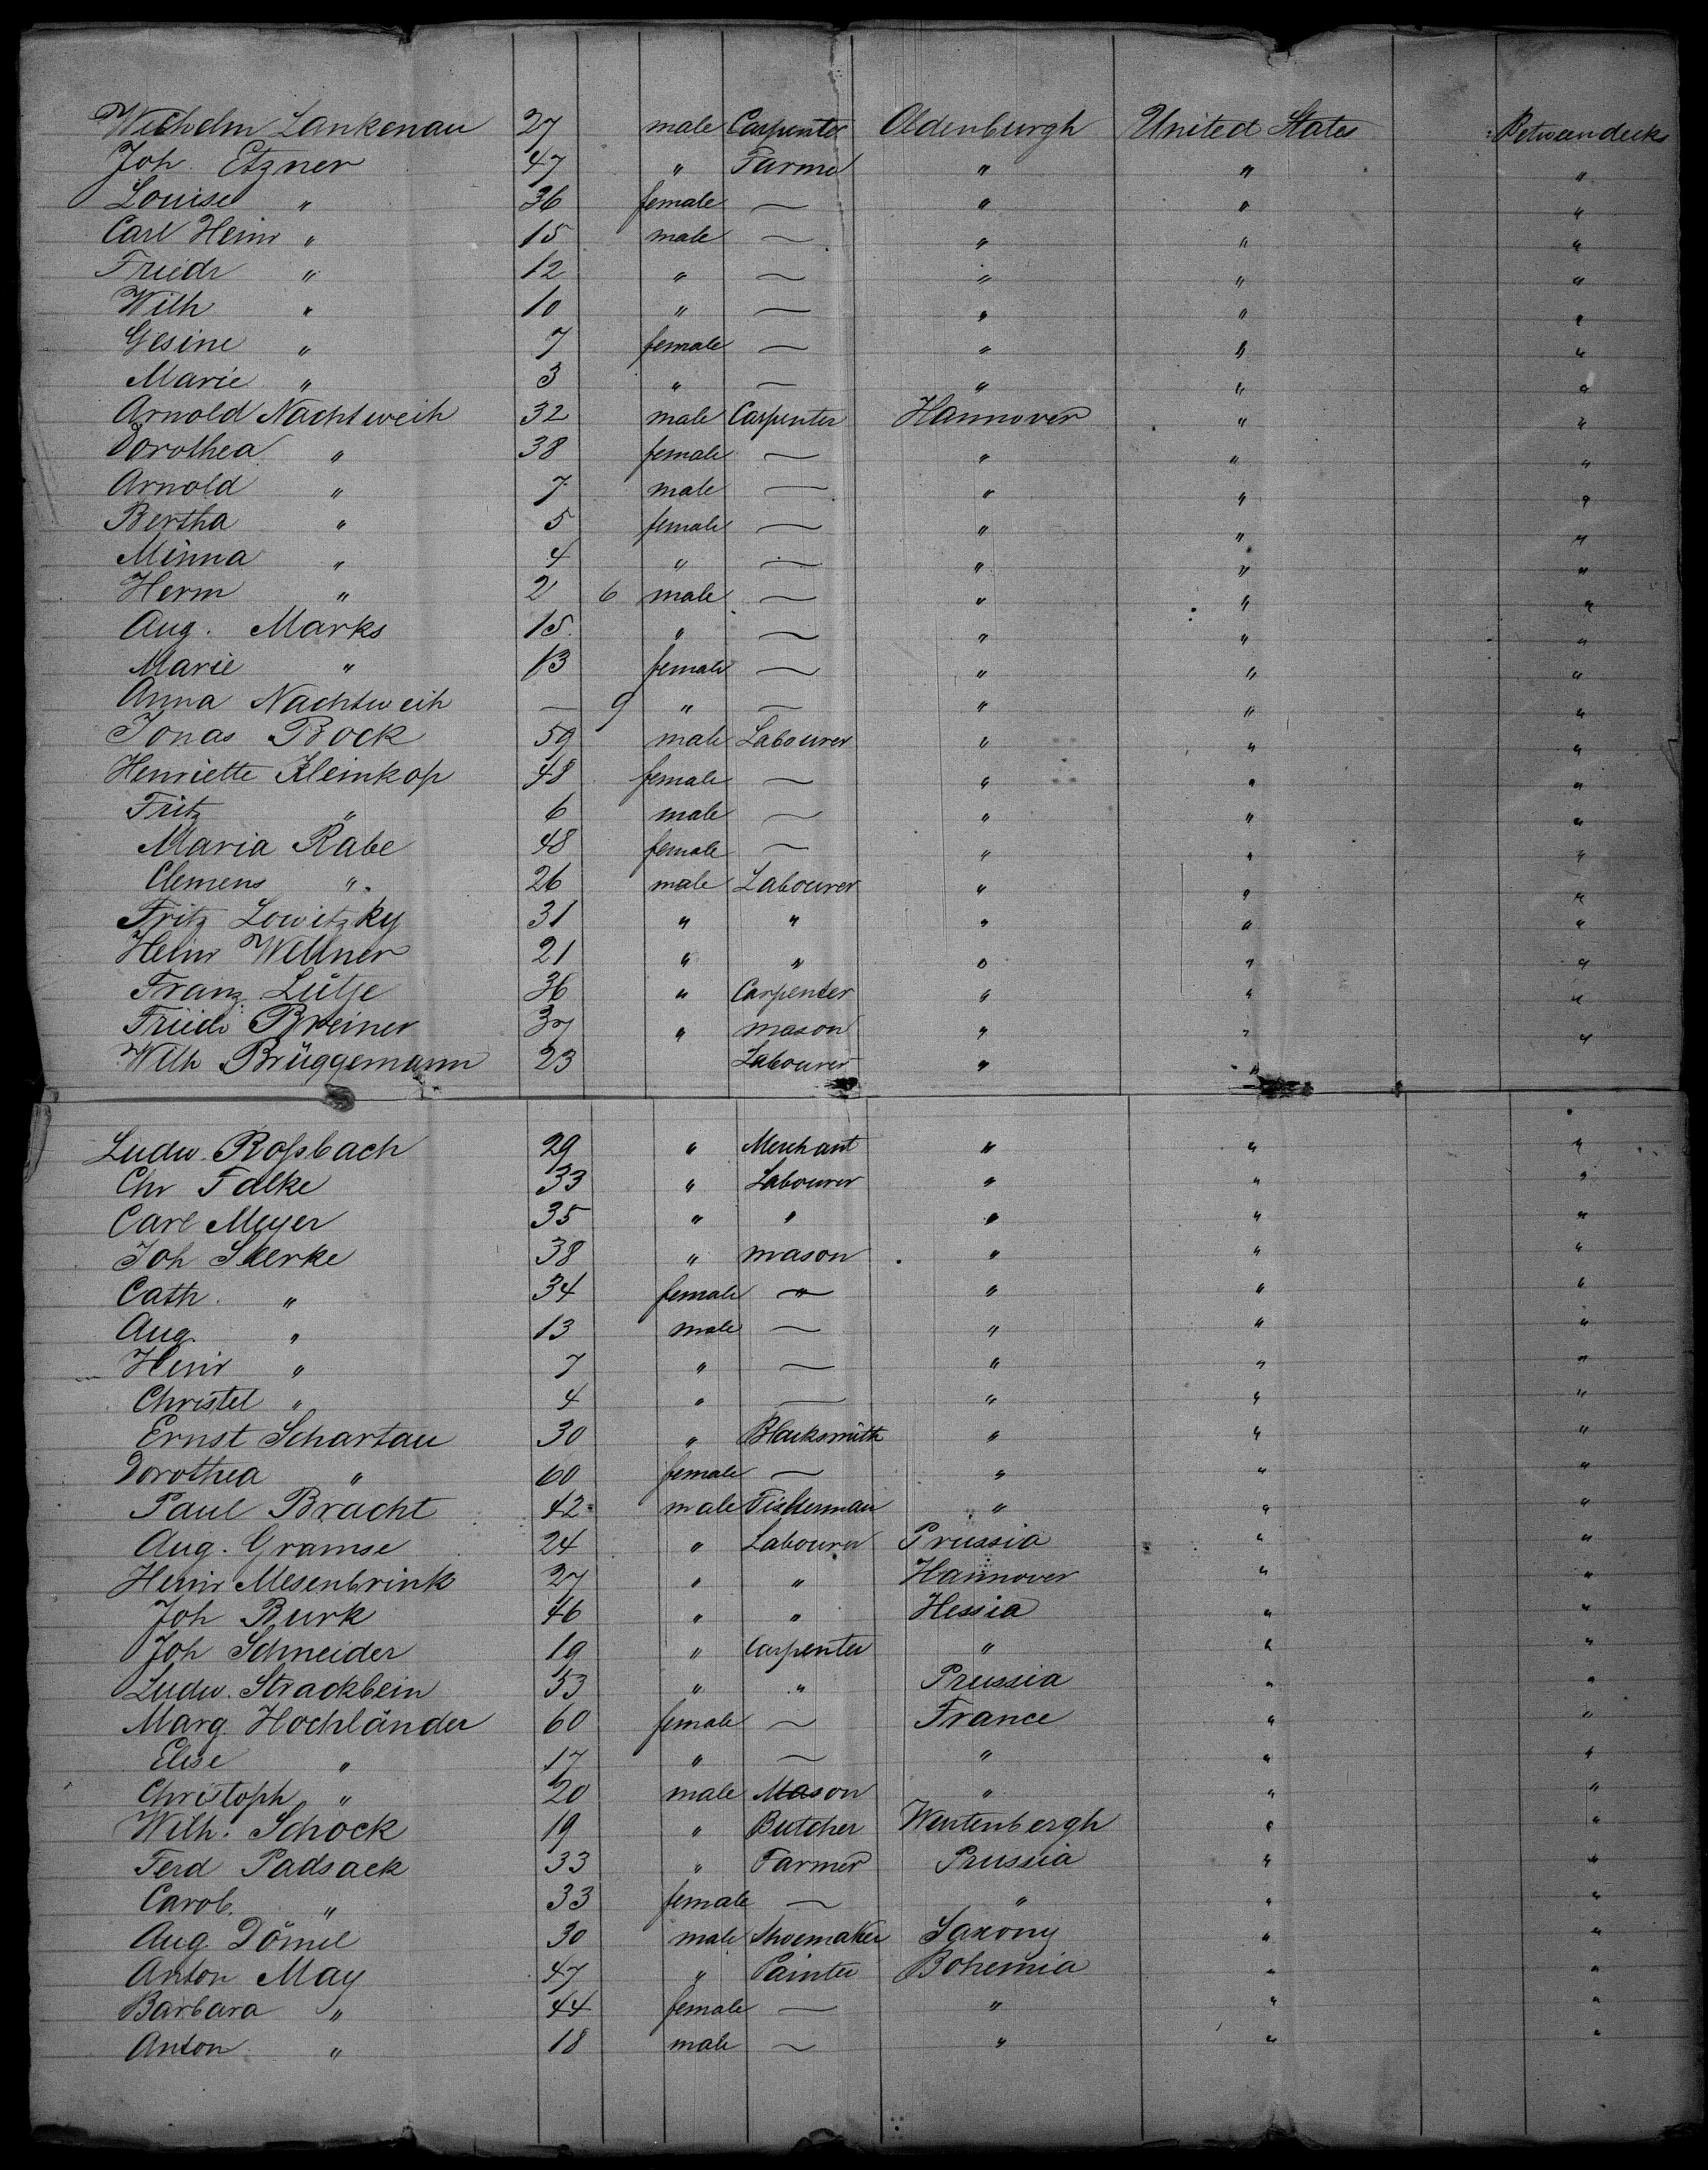 Wilhelm Lankenau 27 male Carpenter Oldenburgh United States Betweendecks
Joh. Etzner 47 " Farmer " " "
Louise " 36 female — " " "
Carl Heinr " 15 male — " " "
Friedr " 12 " — " " "
Wilh " 10 " — " " "
Gesine " 7 female — " " "
Marie " 3 " — " " "
Arnold Nachtweih 32 male Carpenter Hannover " "
Dorothea " 38 female — " " "
Arnold " 7 male — " " "
Bertha " 5 female — " " "
Minna " 4 " — " " "
Herm " 2 6 male — " " "
Aug. Marks 15 " — " " "
Marie " 13 female — " " "
Anna Nachtweih — 9 " — " " "
Jonas Bock 59 male Labourer " " "
Henriette Kleinkop 48 female — " " "
Fritz " 6 male — " " "
Maria Rabe 48 female — " " "
Clemens " 26 male Labourer " " "
Fritz Lowitzky 31 " " " " "
Heinr Wellner 21 " " " " "
Franz Lütje 36 " Carpenter " " "
Friedr Breiner 37 " mason " " "
Wilh Brüggemann 23 Labourer " "
Ludw. Roßbach 29 " Merchant " " "
Chr Falke 33 " Labourer " " "
Carl Meyer 35 " " " " "
Joh Skerke 38 " mason " " "
Cath. " 34 female — " " "
Aug. " 13 male — " " "
Heinr " 7 " — " " "
Christel " 4 " — " " "
Ernst Schartau 30 " Blacksmith " " "
Dorothea " 60 female — " " "
Paul Bracht 42 male Fisherman " " "
Aug. Gramse 24 " Labourer Prussia " "
Heinr Mesenbrink 27 " " Hannover " "
Joh Burk 46 " " Hessia " "
Joh Schneider 19 " Carpenter " " "
Ludw. Strackbein 53 " " Prussia " "
Marg. Hochländer 60 female — France " "
Elise " 17 " — " " "
Christoph " 20 male Mason " " "
Wilh. Schock 19 " Butcher Wurtenbergh " "
Ferd Padsack 33 " Farmer Prussia " "
Carol. " 33 female — " " "
Aug Dömel 30 male Shoemaker Saxony " "
Anton May 47 " Painter Bohemia " "
Barbara " 44 female — " " "
Anton " 18 male — " " "